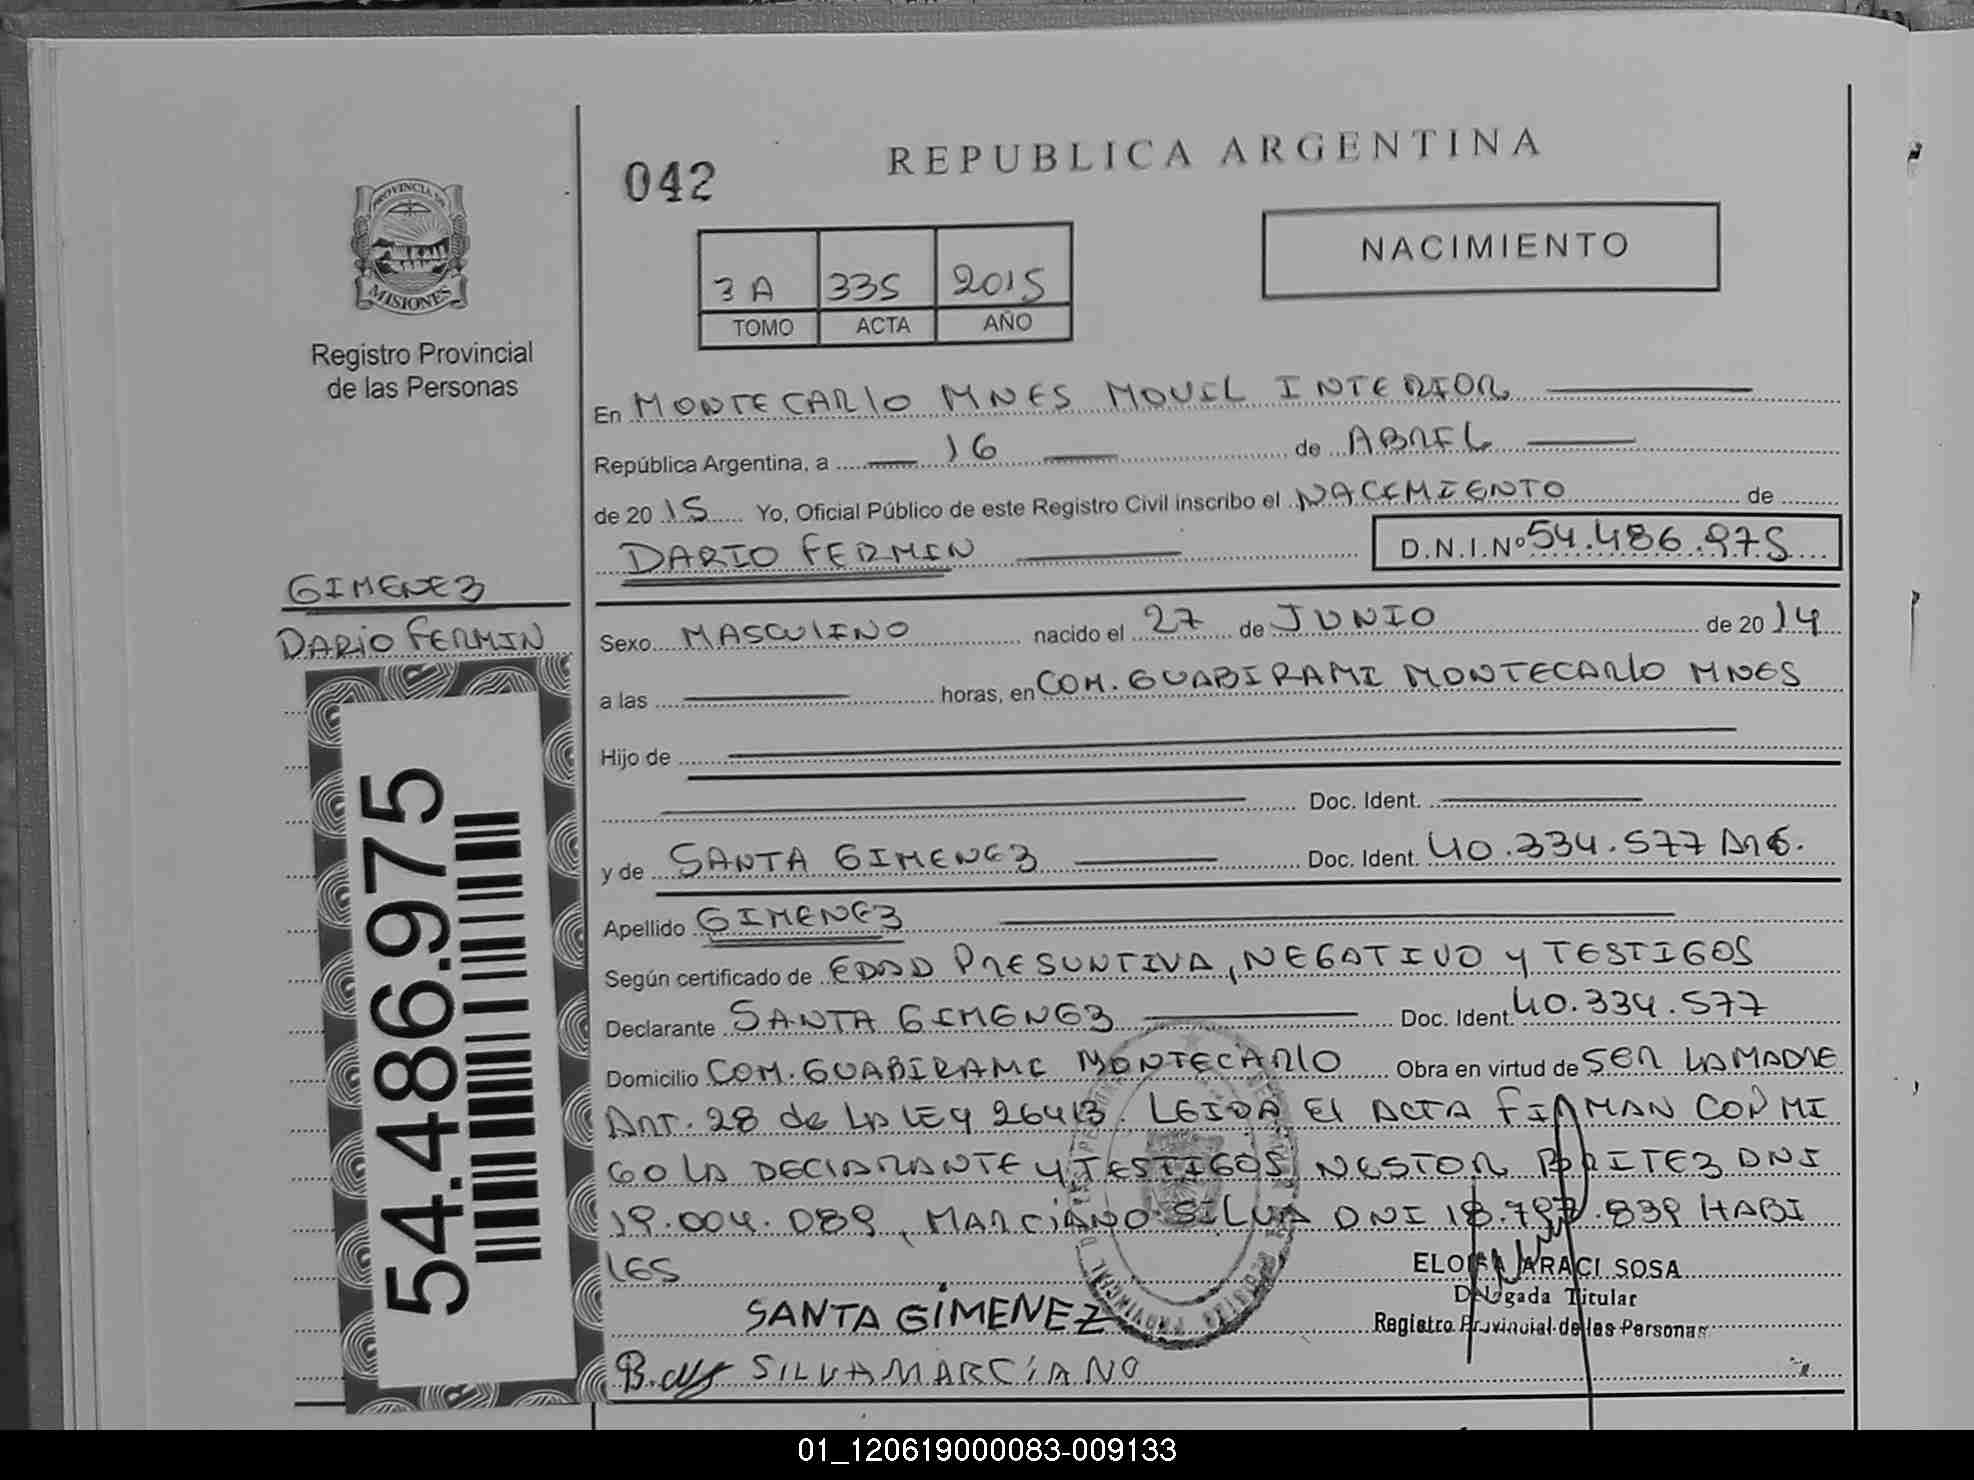 REPUBLICA ARGENTINA
042
NACIMIENTO
PROVINCIA DE
MISIONES
Registro Provincial
de las Personas
3 A 335 2015
TOMO ACTA AÑO
En MONTECARLO MNES MOVIL INTERIOR
República Argentina, a 16 de ABRIL
de 20 15 Yo, Oficial Público de este Registro Civil inscribo el NACIMIENTO de
DARIO FERMIN D.N.I.Nº 54.486.975
GIMENEZ
DARIO FERMIN
54.486.975
Sexo MASCULINO nacido el 27 de JUNIO de 20 14
a las horas, en COM. GUABIRAMI MONTECARLO MNES
Hijo de
Doc. Ident.
y de SANTA GIMENEZ Doc. Ident. 40.334.577 ARG.
Apellido GIMENEZ
Según certificado de EDAD PRESUNTIVA, NEGATIVO Y TESTIGOS
Declarante SANTA GIMENEZ Doc. Ident. 40.334.577
Domicilio COM. GUABIRAMI MONTECARLO Obra en virtud de SER LA MADRE
ART. 28 de LA LEY 26413. LEIDA El ACTA FIRMAN CONMI
GO LA DECLARANTE Y TESTIGOS NESTOR BRITEZ DNI
19.004.089, MARCIANO SILVA DNI 18.797.839 HABI
LES
ELOISA ARACI SOSA
Delegada Titular
Registro Provincial de las Personas
SANTA GIMENEZ
SILVA MARCIANO
01_120619000083-009133